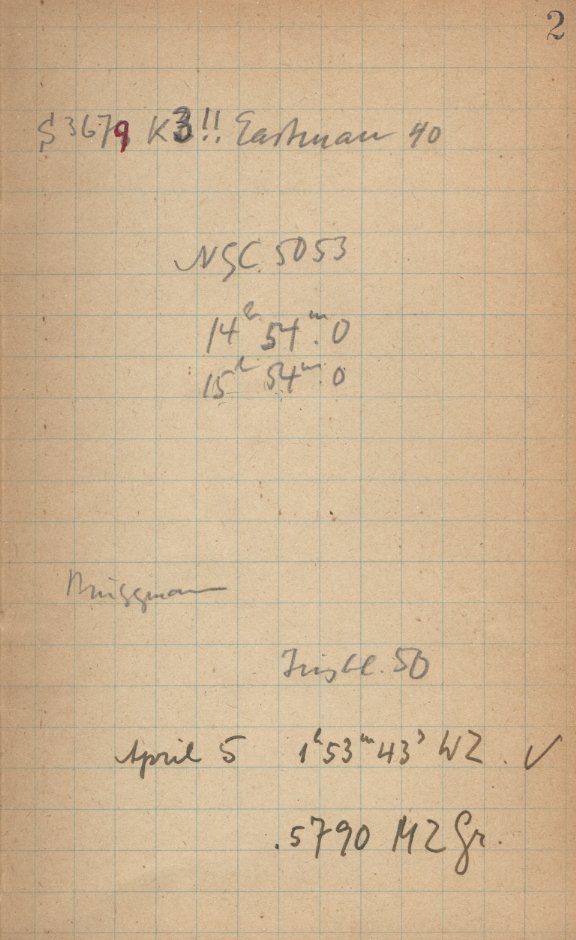 2
S 3679 K3!! Eastman 40
NGC. 5053
14h 54m.0
15h 54m.0
Brüggmann
50
April 5 1h 53m 43s WZ. ✓
.5790 MZ Gr.